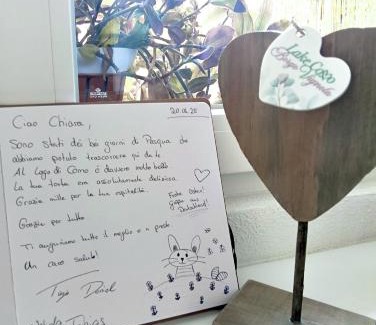 20.04.25
Ciao Chiara,
Sono stati dei bei giorni di Pasqua che
abbiamo potuto trascorrere qui da te
Al Lago di Como è davvero molto bello
La tua torta era assolutamente deliziosa
Grazie mille per la tua ospitalità.
Frohe Ostern!
Grüße aus
Deutschland!
Grazie per tutto
Ti auguriamo tutto il meglio e a presto
Un caro saluto!
Lake Como